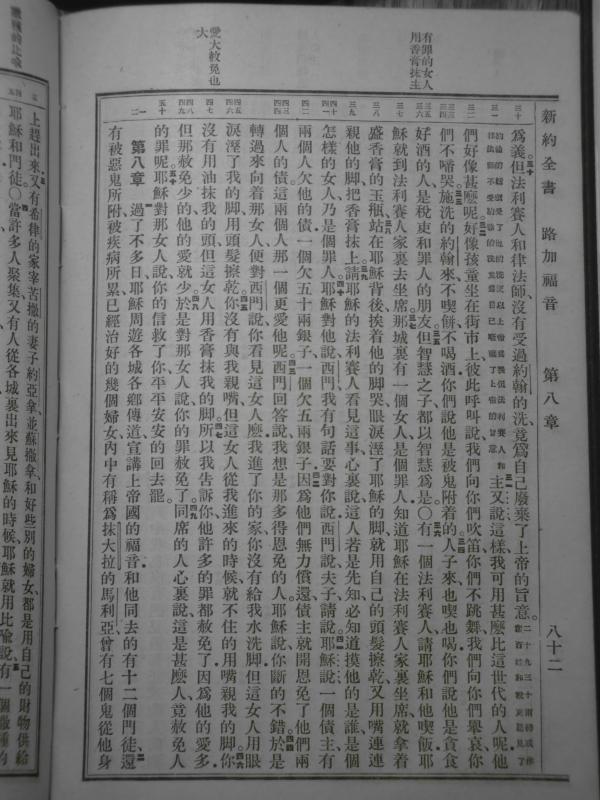 新約全書　路加福音　第八章　八十二
有罪的女人
用香膏抹主
愛大赦免也
大
爲義但法利賽人和律法師沒有受過約翰的洗竟爲自己廢棄了上帝的旨意。
主又說這樣我可用甚麽比這世代的人呢他
們好像甚麽呢好像孩童坐在街市上彼此呼叫說我們向你們吹笛你們不跳舞我們向你們舉哀你
們不啼哭施洗的約翰來不喫餅不喝酒你們說他是被鬼附着的人子來也喫也喝你們說他是貪食
好酒的人是稅吏和罪人的朋友但智慧之子都以智慧爲是〇有一個法利賽人請耶穌和他喫飯耶
穌就到法利賽人家裏去坐席那城裏有一個女人是個罪人知道耶穌在法利賽人家裏坐席就拿着
盛香膏的玉瓶站在耶穌背後挨着他的脚哭眼淚溼了耶穌的脚就用自己的頭髮擦乾又用嘴連連
親他的脚把香膏抹上請耶穌的法利賽人看見這事心裏說這人若是先知必知道摸他的是誰是個
怎樣的女人乃是個罪人耶穌對他說西門我有句話要對你說西門說夫子請說耶穌說一個債主有
兩個人欠他的債一個欠五十兩銀子一個欠五兩銀子因爲他們無力償還債主就開恩免了他們兩
個人的債這兩個人那一個更愛他呢西門回答說我想是那多得恩免的人耶穌說你斷的不錯於是
轉過來向着那女人便對西門說你看見這女人麽我進了你的家你沒有給我水洗脚但這女人用眼
淚溼了我的脚用頭髮擦乾你沒有與我親嘴但這女人從我進來的時候就不住的用嘴親我的脚你
沒有用油抹我的頭但這女人用香膏抹我的脚所以我告訴你他許多的罪都赦免了因爲他的愛多
但那赦免少的他的愛就少於是對那女人說你的罪赦免了同席的人心裏說這是甚麽人竟赦免人
的罪呢耶穌對那女人說你的信救了你平平安安的回去罷。
第八章　過了不多日耶穌周遊各城各鄉傳道宣講上帝國的福音和他同去的有十二個門徒還
有被惡鬼所附被疾病所累已經治好的幾個婦女內中有稱爲抹大拉的馬利亞曾有七個鬼從他身
上趕出來又有希律的家宰苦撒的妻子約亞拿並蘇撒拿和好些別的婦女都是用自己的財物供給
耶穌和門徒。當許多人聚集又有人從各城裏出來見耶穌的時候耶穌就用比喻說有一個撒種的